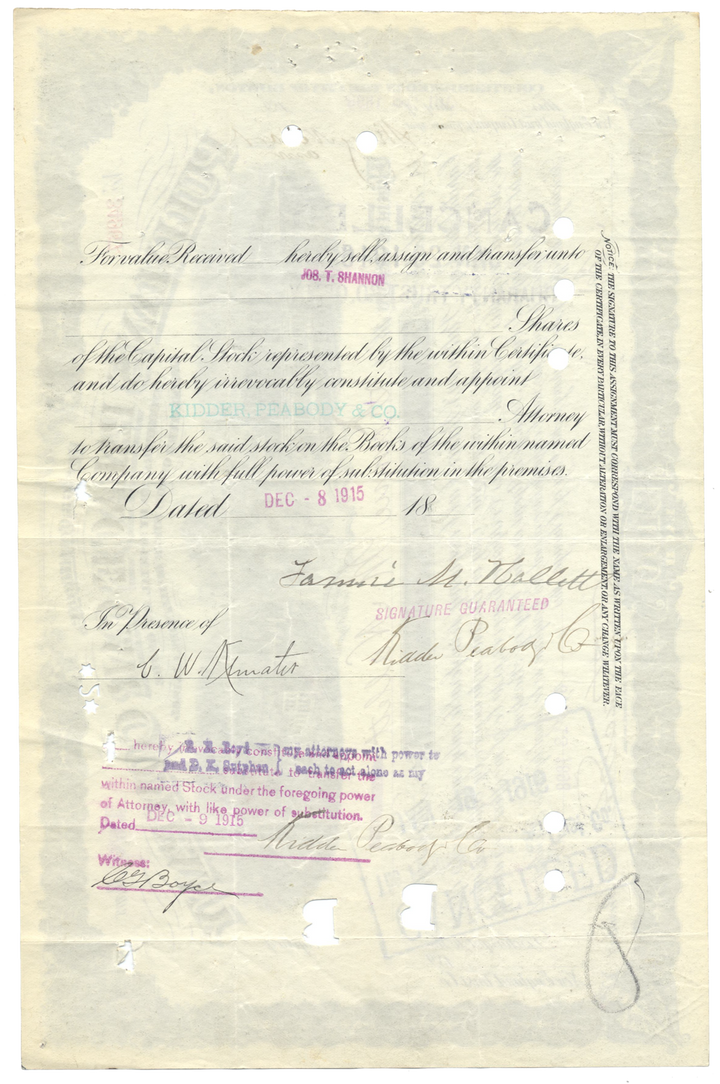 For value Received hereby sell, assign and transfer unto
JOS. T. SHANNON
Shares
of the Capital Stock represented by the within Certificate,
and do hereby irrevocably constitute and appoint
KIDDER, PEABODY & CO.
Attorney
to transfer the said stock on the Books of the within named
Company with full power of substitution in the premises.
Dated DEC - 8 1915 18
Fannie M. Hallett
SIGNATURE GUARANTEED
In Presence of
Kidder Peabody & Co
C. W.
hereby irrevocably constitute and appoint
my attorneys with power to
and D. K. each to act alone as my
substitute to transfer the
within named Stock under the foregoing power
of Attorney, with like power of substitution.
Dated DEC - 9 1915
Kidder Peabody & Co
Witness:
Boyce
NOTICE: THE SIGNATURE TO THIS ASSIGNMENT MUST CORRESPOND WITH THE NAME AS WRITTEN UPON THE FACE
OF THE CERTIFICATE, IN EVERY PARTICULAR, WITHOUT ALTERATION OR ENLARGEMENT, OR ANY CHANGE WHATEVER.
CANCELLED